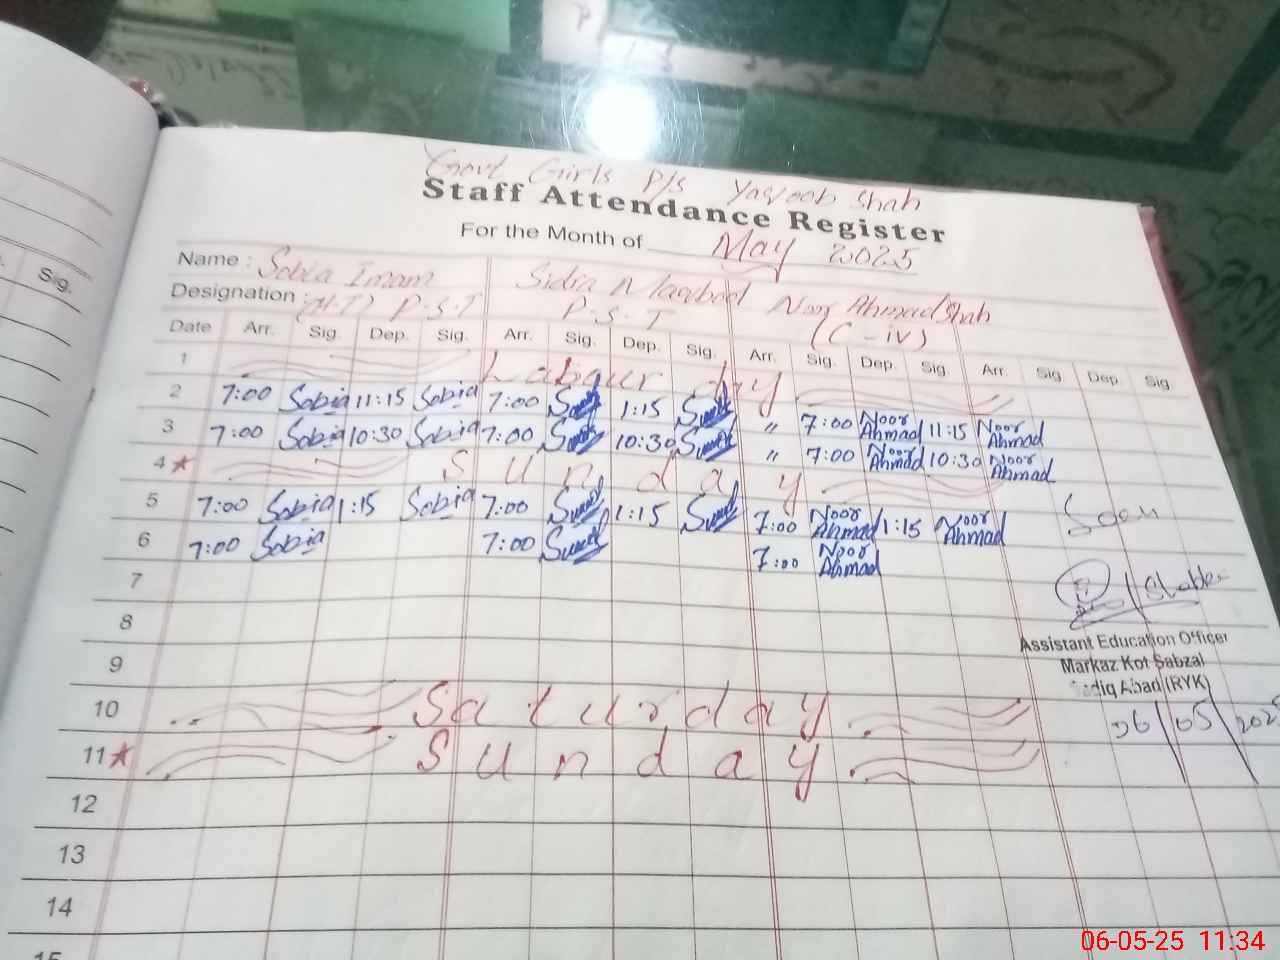 Sig.
Govt Girls P/S Yaqoob Shah
Staff Attendance Register
For the Month of May 2025
Name : Sobia Imam Sidra Maqbool Noor Ahmad Shah
Designation : (H.T) P.S.T P.S.T (C-iv)
Date Arr. Sig. Dep. Sig. Arr. Sig. Dep. Sig. Arr. Sig. Dep. Sig. Arr. Sig. Dep. Sig
1 Labour day
2 7:00 Sobia 11:15 Sobia 7:00 1:15 " 7:00 Noor Ahmad 11:15 Noor Ahmad
3 7:00 Sobia 10:30 Sobia 7:00 10:30 " 7:00 Noor Ahmad 10:30 Noor Ahmad
4 ★ Sunday
5 7:00 Sobia 1:15 Sobia 7:00 1:15 7:00 Noor Ahmad 1:15 Noor Ahmad Seen
6 7:00 Sobia 7:00 7:00 Noor Ahmad
7
8
Assistant Education Officer
Markaz Kot Sabzal
9
(RYK)
10 Saturday
06/05/2025
11 ★ Sunday
12
13
14
15
06-05-25 11:34